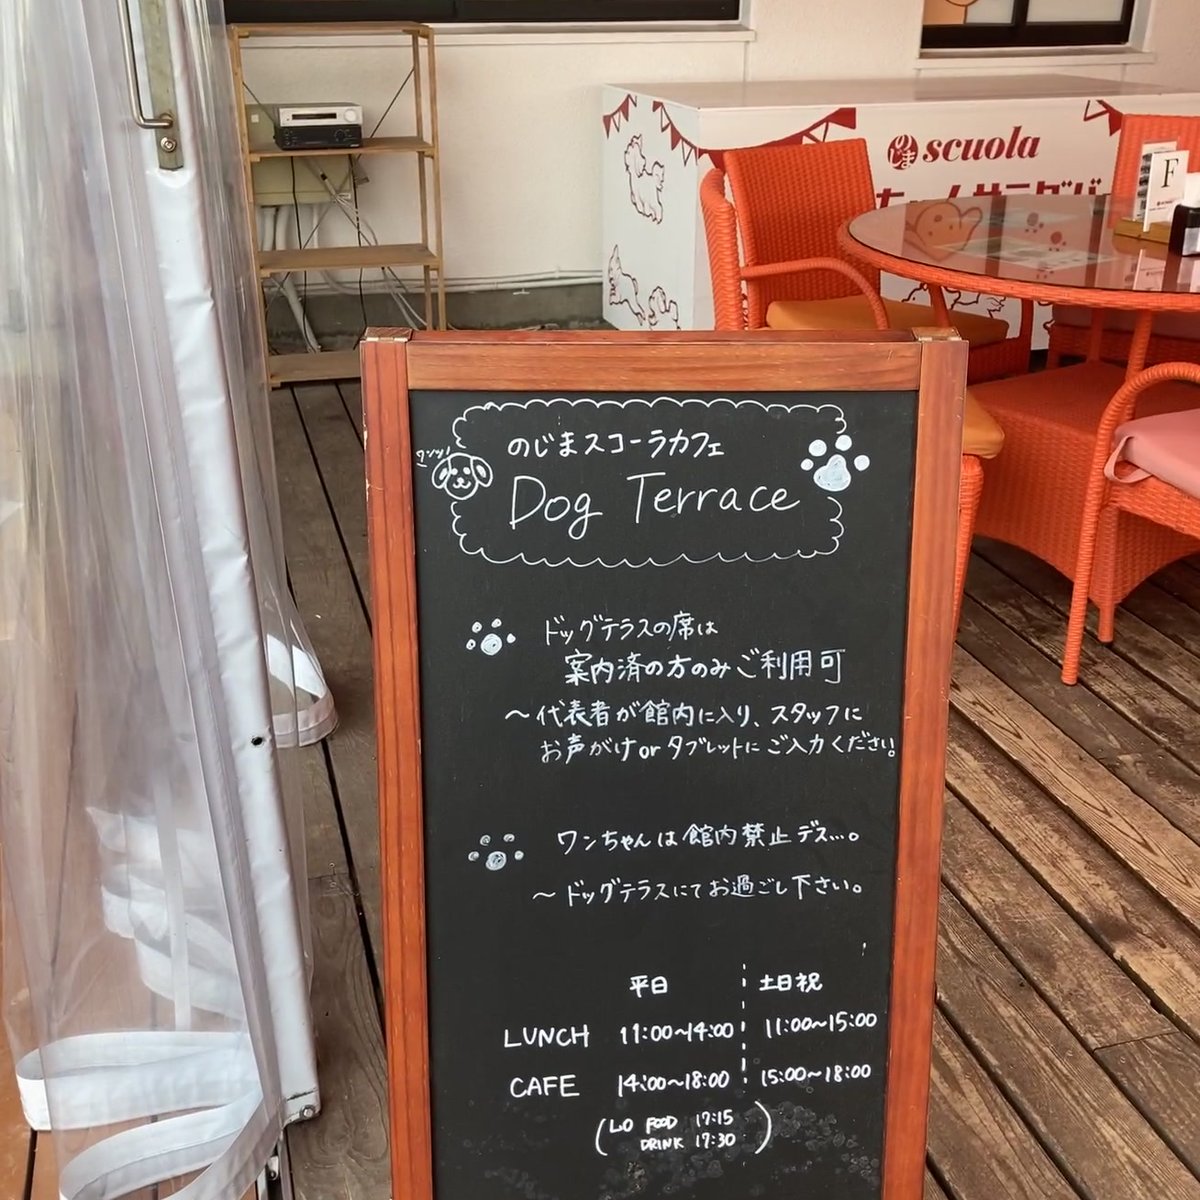 のじま scuola
F
ワンッ!
のじまスコーラカフェ
Dog Terrace
ドッグテラスの席は
案内済の方のみご利用可
〜代表者が館内に入り、スタッフに
お声がけorタブレットにご入力ください!
ワンちゃんは館内禁止デス…。
〜ドッグテラスにてお過ごし下さい。
平日 土日祝
LUNCH 11:00〜14:00 11:00〜15:00
CAFE 14:00〜18:00 15:00〜18:00
(LO FOOD 17:15
DRINK 17:30)